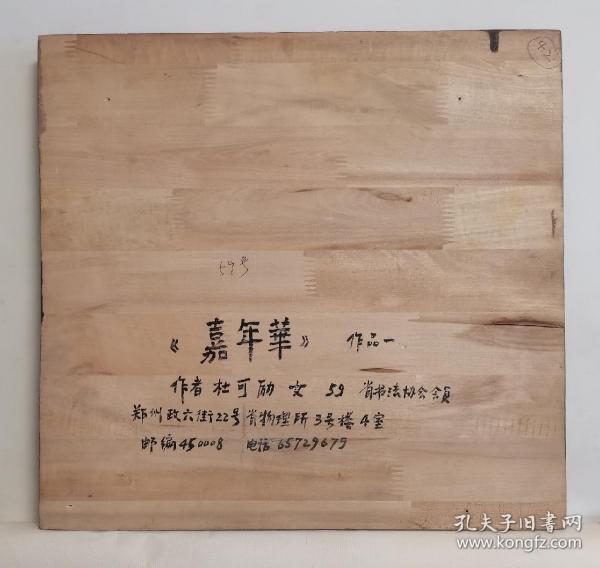 59号
《嘉年華》 作品一
作者 杜可励 女 59 省书法协会会员
郑州政六街22号省物理所3号楼4室
邮编450008 电话65729679
孔夫子旧書网
www.kongfz.com